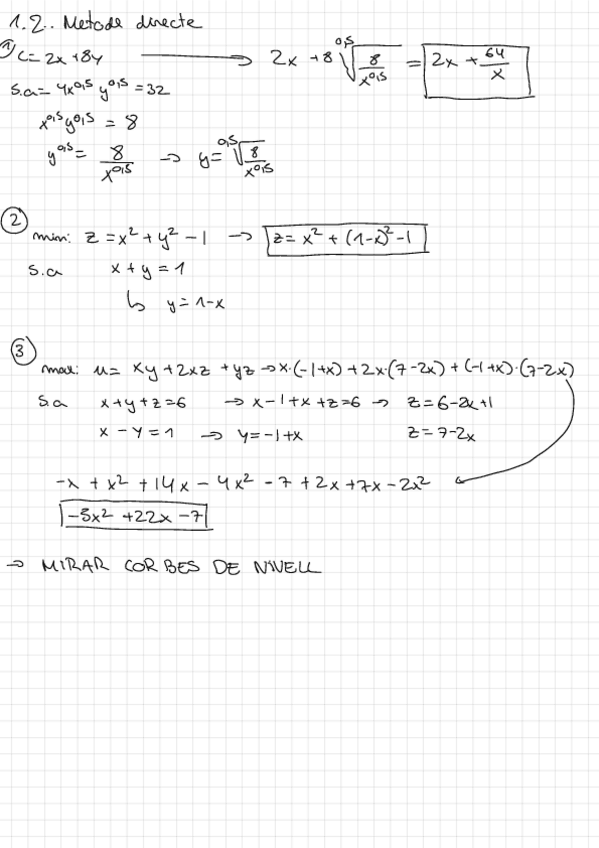 1.2.. Metode directe
1) C = 2x + 8y → 2x + 8 ^0,5√(8/x^0,5) = 2x + 64/x
s.a = 4x^0,5 y^0,5 = 32
x^0,5 y^0,5 = 8
y^0,5 = 8/x^0,5 → y = ^0,5√(8/x^0,5)
2
min: z = x² + y² - 1 → z = x² + (1-x)² - 1
s.a x + y = 1
↳ y = 1-x
3
max: u = xy + 2xz + yz → x·(-1+x) + 2x·(7-2x) + (-1+x)·(7-2x)
s.a x+y+z=6 → x-1+x+z=6 → z=6-2x+1
x - y = 1 → y=-1+x z=7-2x
-x + x² + 14x - 4x² - 7 + 2x + 7x - 2x²
-5x² + 22x - 7
→ MIRAR CORBES DE NIVELL